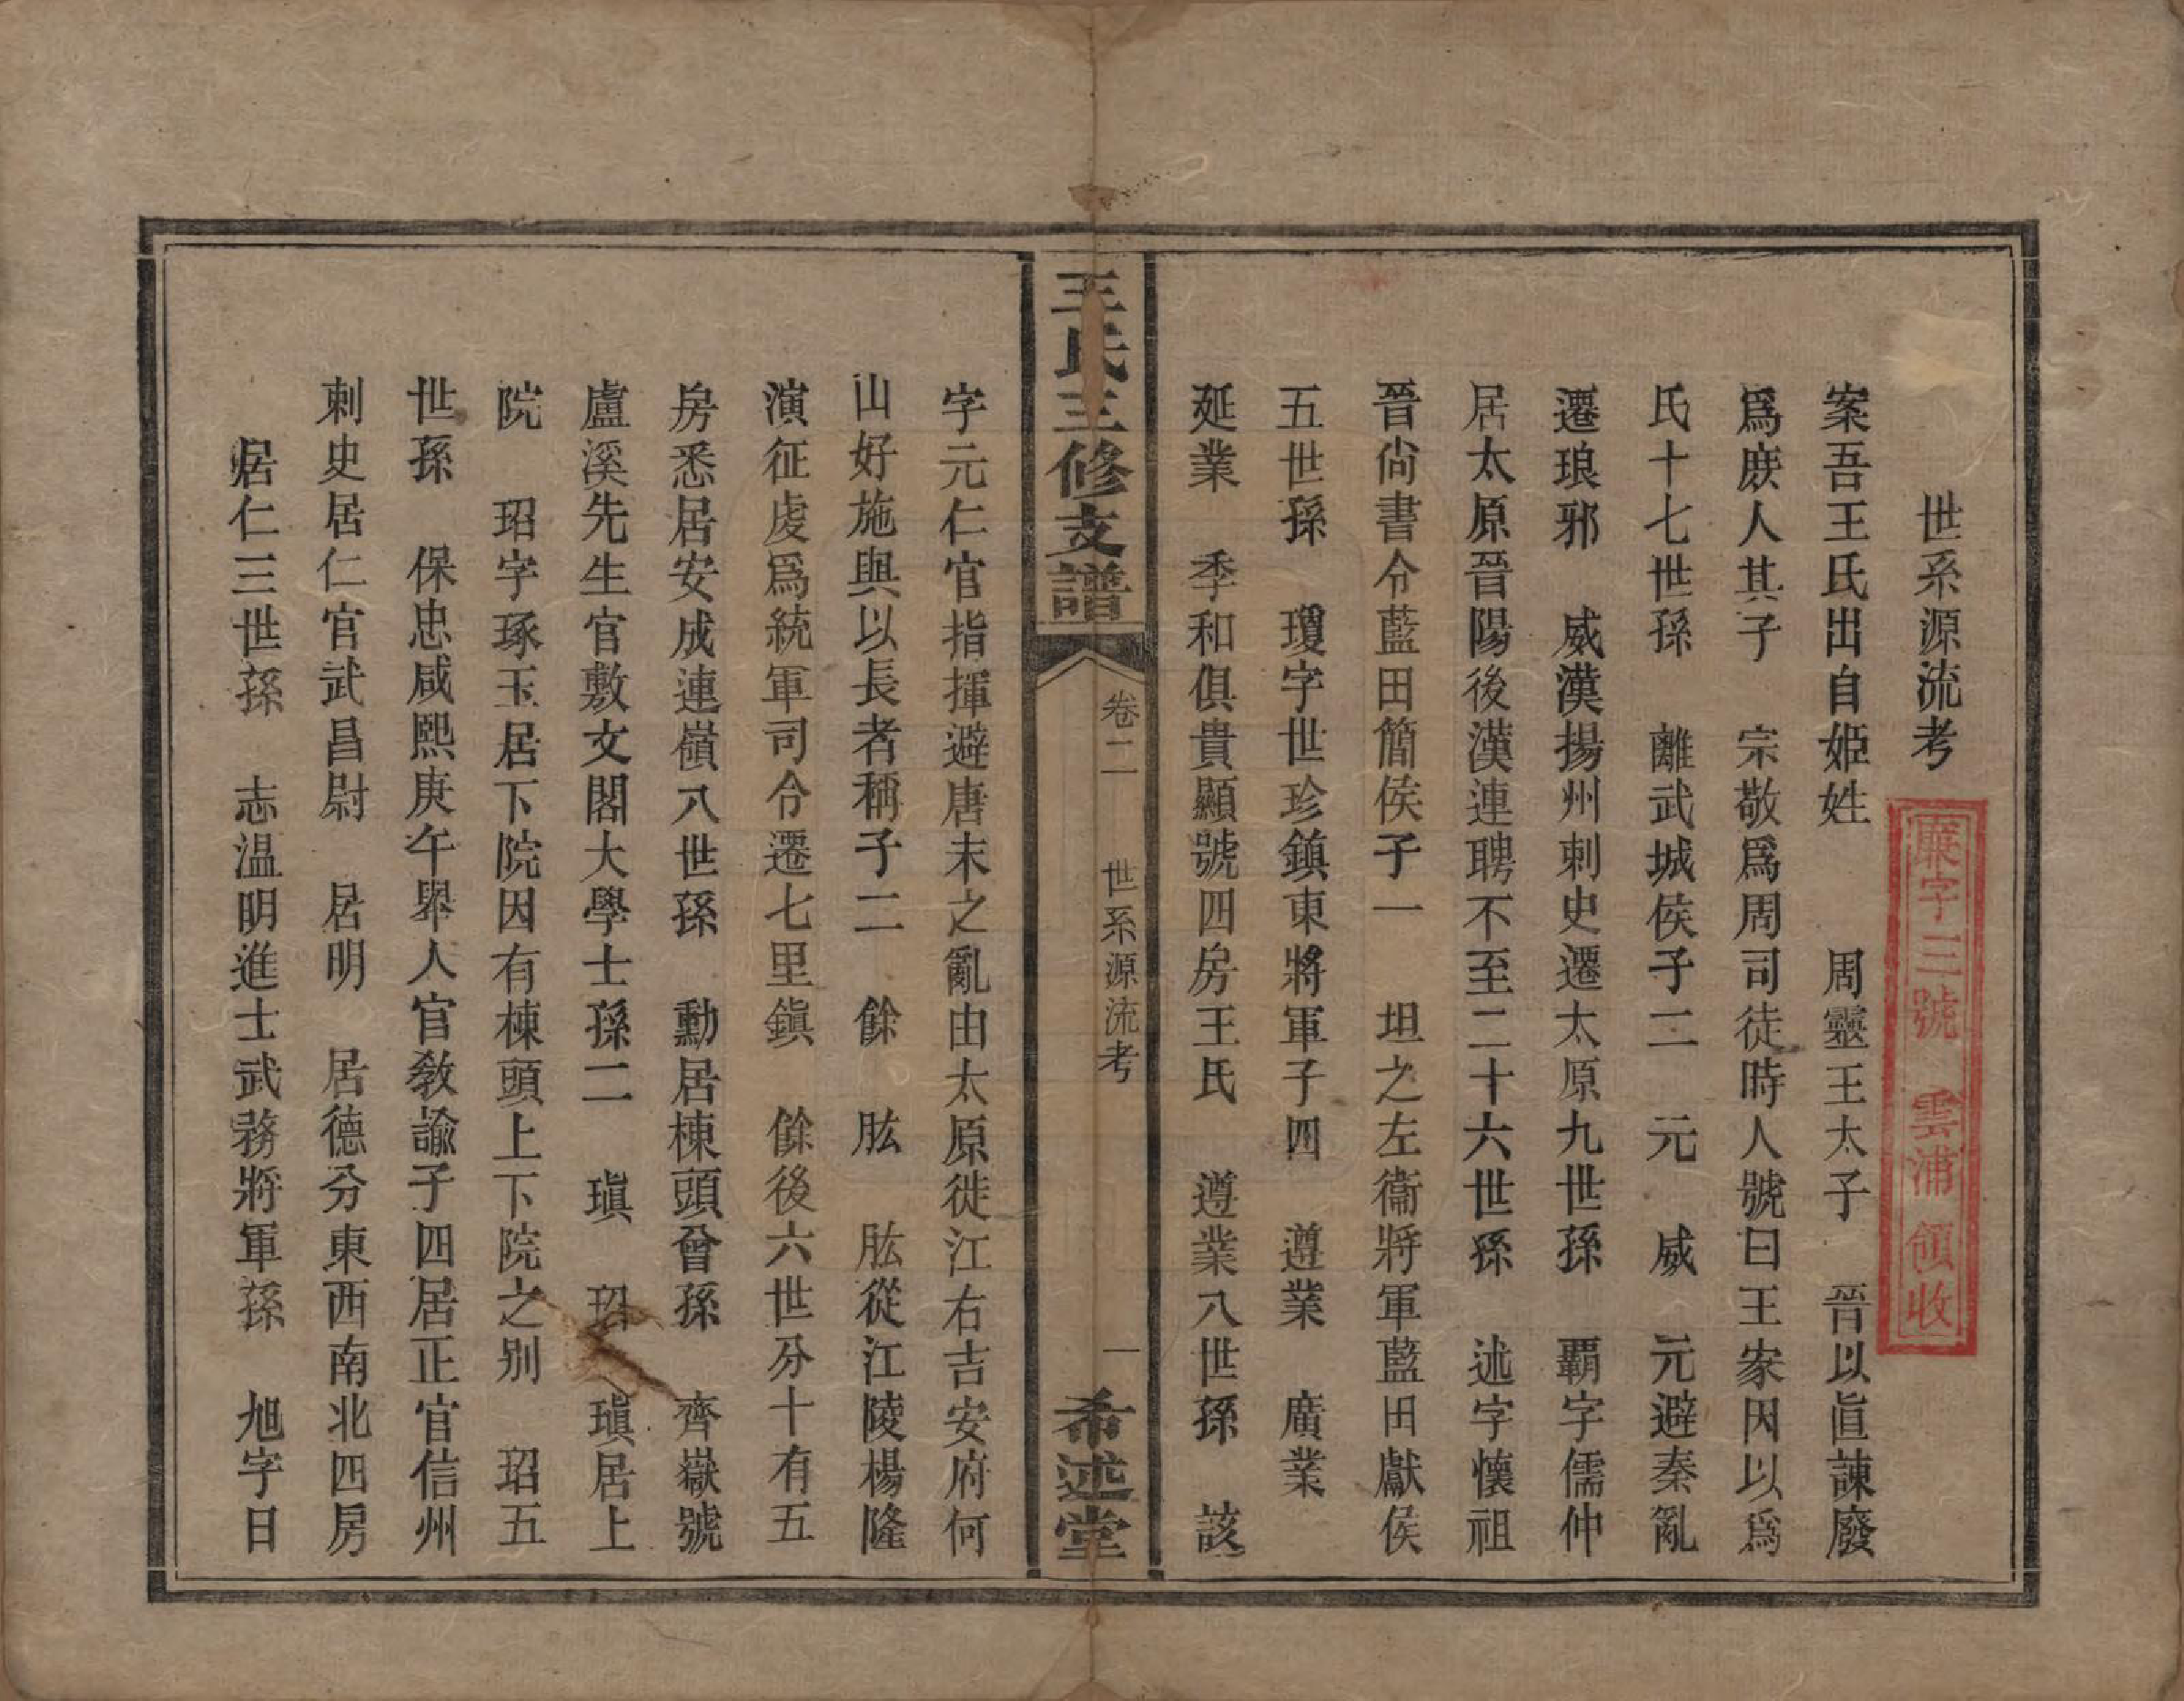 世系源流考
案吾王氏出自姬姓　周靈王太子　晉以直諫廢
爲庶人其子　宗敬爲周司徒時人號曰王家因以爲
氏十七世孫　離武城侯子二　元　威　元避秦亂
遷琅邪　威漢揚州刺史遷太原九世孫　霸字儒仲
居太原晉陽後漢連聘不至二十六世孫　述字懷祖
晉尙書令藍田簡侯子一　坦之左衞將軍藍田獻侯
五世孫　瓊字世珍鎮東將軍子四　遵業　廣業
延業　季和俱貴顯號四房王氏　遵業八世孫　該
王氏三修支譜
卷二　世系源流考　一
希述堂
字元仁官指揮避唐末之亂由太原徙江右吉安府何
山好施與以長者稱子二　餘　肱　肱從江陵楊隆
演征虔爲統軍司令遷七里鎭　餘後六世分十有五
房悉居安成連嶺八世孫　勳居棟頭曾孫　齊嶽號
盧溪先生官敷文閣大學士孫二　瑱　玿　瑱居上
院　玿字琢玉居下院因有棟頭上下院之别　玿五
世孫　保忠咸熙庚午舉人官敎諭子四居正官信州
刺史居仁官武昌尉　居明　居德分東西南北四房
居仁三世孫　志温明進士武務將軍孫　旭字日
廉字三號　雲浦　領收